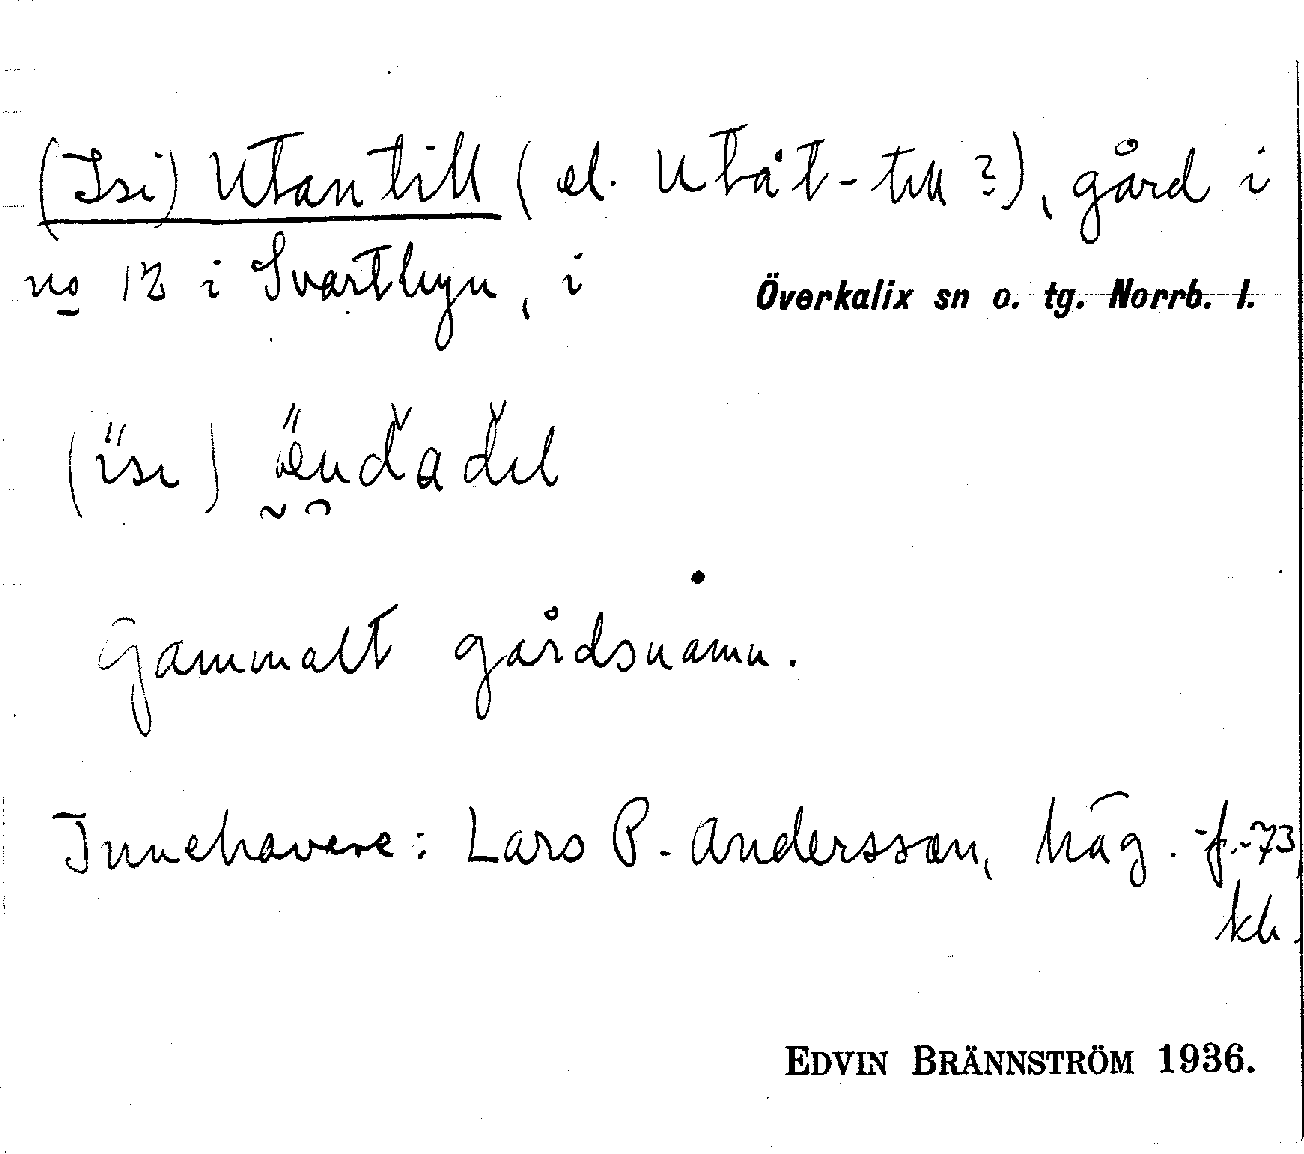 (Isi) Utantill (el. Utåt-till?), gård i
no 12 i Svartbyn, i Överkalix sn o. tg. Norrb. l.
(isi)
Gammalt gårdsnamn.
Innehavere: Lars P. Andersson, häg. f.-73,
kh.
EDVIN BRÄNNSTRÖM 1936.